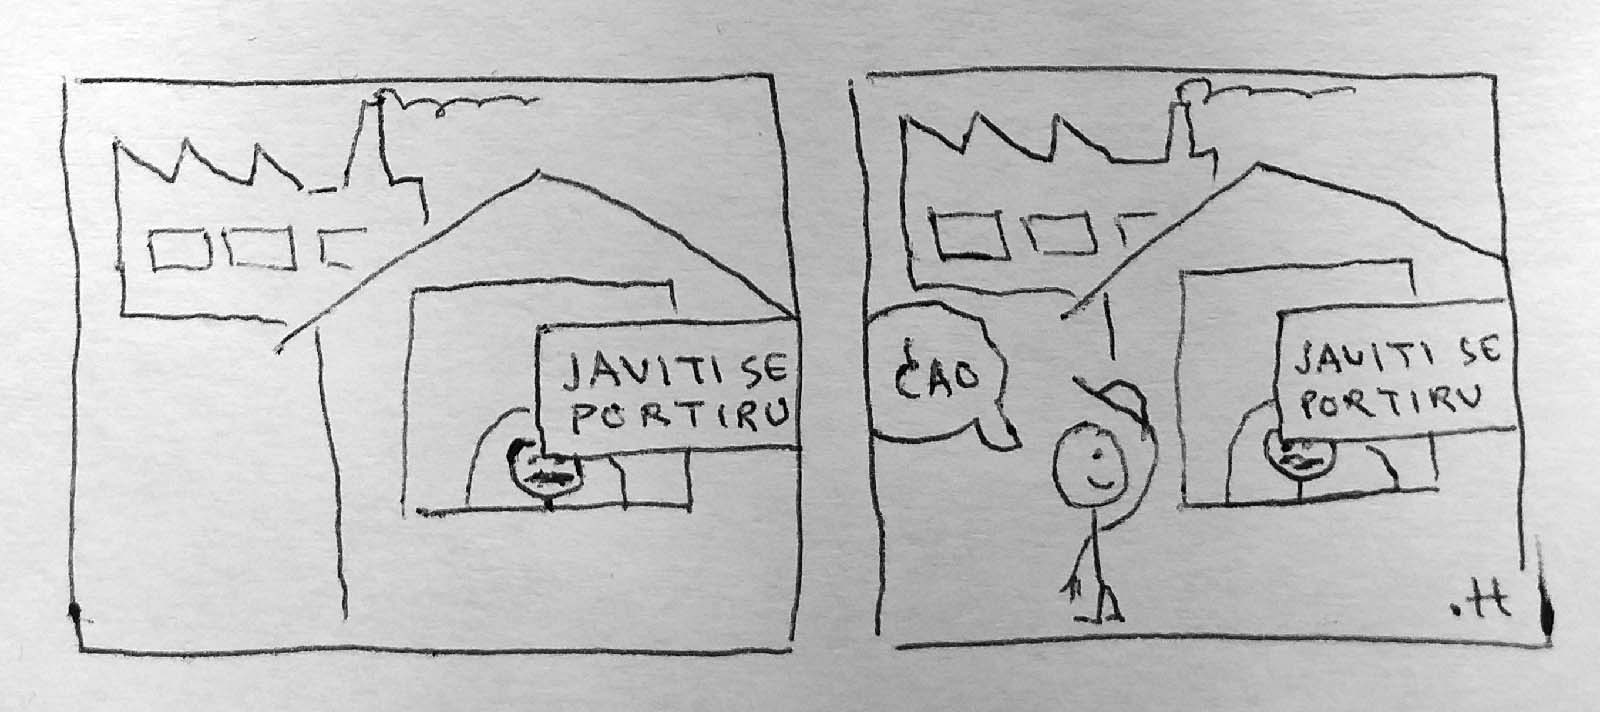 JAVITI SE
PORTIRU
ĆAO
JAVITI SE
PORTIRU
.H